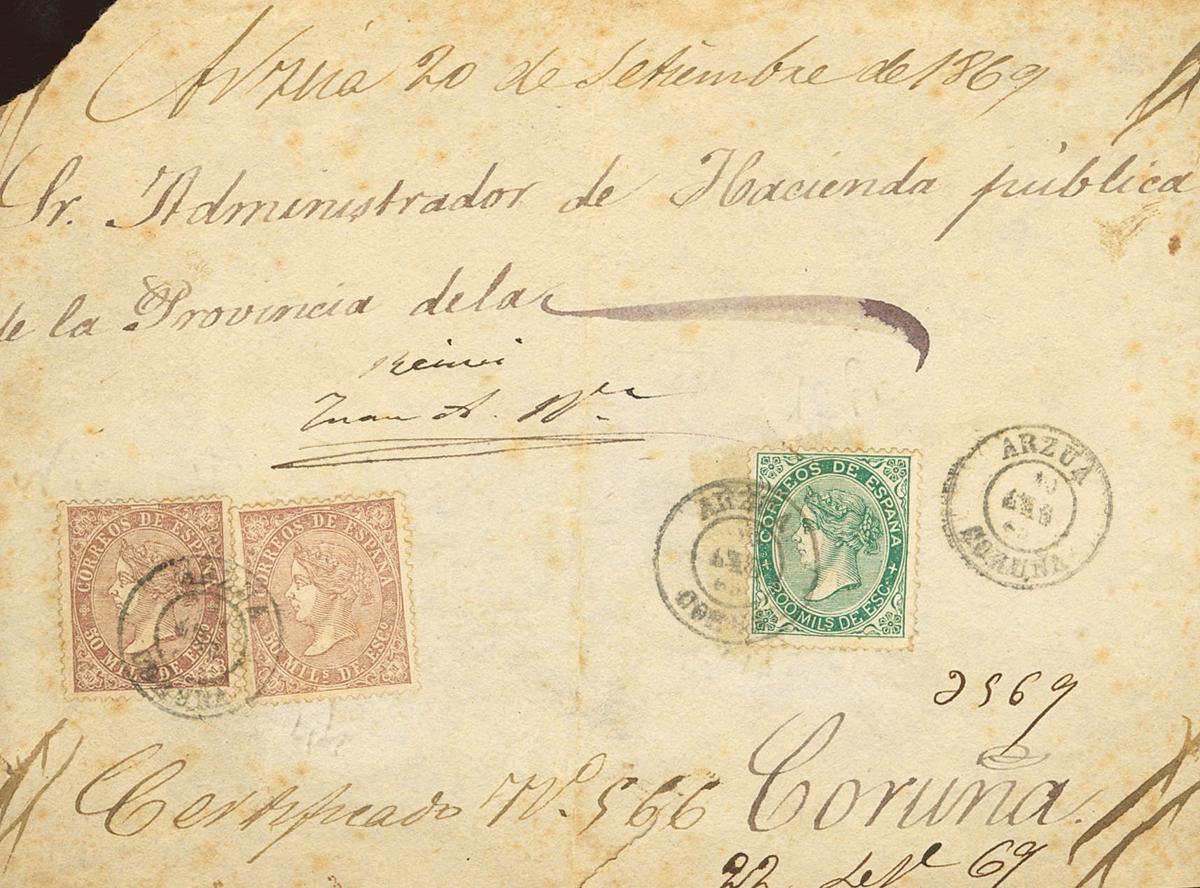 Arzúa 20 de Setiembre de 1869
Sr. Administrador de Hacienda pública
de la Provincia de la
Juan A.
CORREOS DE ESPAÑA
50 MILS DE ESCO
CORREOS DE ESPAÑA
50 MILS DE ESCO
ARZUA
CORUÑA
CORREOS DE ESPAÑA
200 MILS DE ESCO
ARZUA
CORUÑA
ARZUA
CORUÑA
2569
Certificado No. 566
Coruña.
22 69